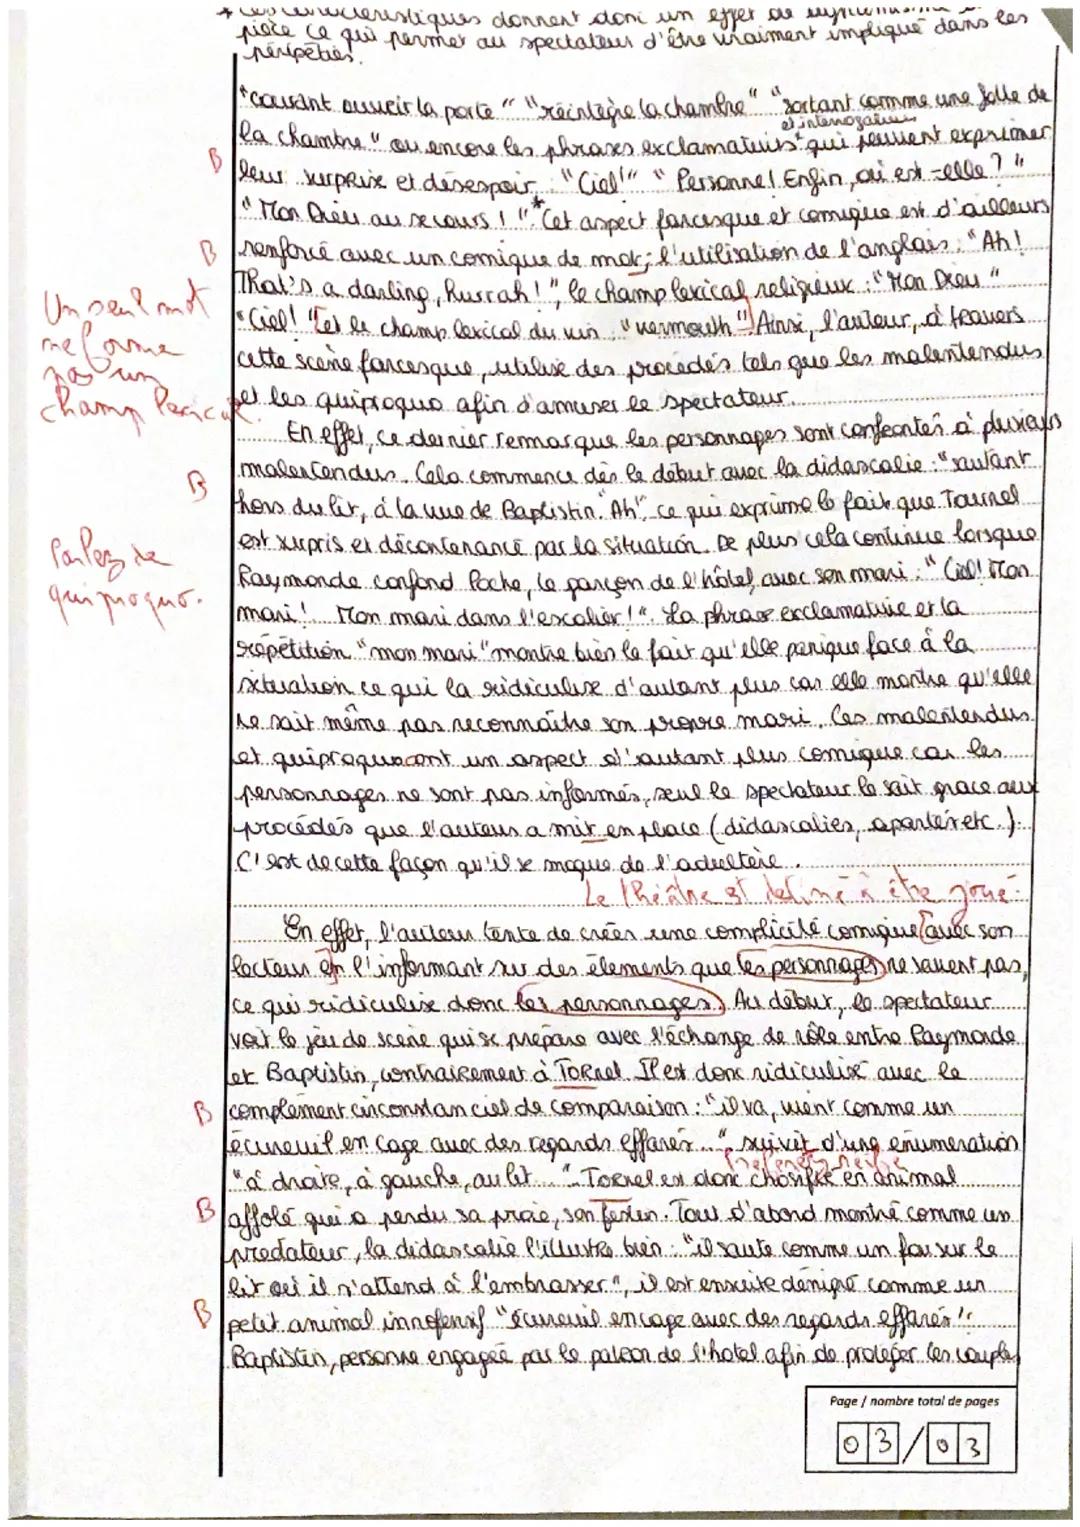 * Ces caractéristiques donnent donc un effet de
pièce ce qui permet au spectateur d'être vraiment impliqué dans les
péripéties.
"courant ouvrir la porte" "réintègre la chambre" "sortant comme une folle de
et interrogatives
la chambre" ou encore les phrases exclamatives qui peuvent exprimer
B
leur surprise et désespoir : "Ciel!" "Personne! Enfin, où est-elle ? "
"Mon Dieu au secours ! ".* Cet aspect farcesque et comique est d'ailleurs
B
renforcé avec un comique de mot; l'utilisation de l'anglais : "Ah!
That's a darling, hurrah!", le champ lexical religieux : "Mon Dieu"
Un seul mot
ne forme
pas un
champ lexical
"Ciel! "[et le champ lexical du vin : "vermouth"] Ainsi, l'auteur, à travers
cette scène farcesque, utilise des procédés tels que les malentendus
et les quiproquo afin d'amuser le spectateur.
En effet, ce dernier remarque les personnages sont confrontés à plusieurs
malentendus. Cela commence dès le début avec la didascalie : "sautant
B
hors du lit, à la vue de Baptistin. "Ah", ce qui exprime le fait que Tournel
est surpris et décontenancé par la situation. De plus cela continue lorsque
Parlez de
quiproquo.
Raymonde confond Poche, le garçon de l'hôtel, avec son mari : "Ciel! Mon
mari! Mon mari dans l'escalier!". La phrase exclamative et la
répétition "mon mari" montre bien le fait qu'elle panique face à la
situation ce qui la ridiculise d'autant plus car elle montre qu'elle
ne sait même pas reconnaître son propre mari. Ces malentendus
et quiproquo ont un aspect d'autant plus comique car les
personnages ne sont pas informés, seul le spectateur le sait grace aux
procédés que l'auteur a mit en place (didascalies, apartés etc.).
C'est de cette façon qu'il se moque de l'adultère.
Le théâtre est destiné à être joué.
En effet, l'auteur tente de créer une complicité comique [avec son
lecteur en l'informant sur des élements que les personnages ne savent pas,
ce qui ridiculise donc les personnages. Au début, le spectateur
voit le jeu de scène qui se prépare avec l'échange de rôle entre Raymonde
et Baptistin, contrairement à Tornel. Il est donc ridiculisé avec le
B
complément circonstanciel de comparaison : "il va, vient comme un
écureuil en cage avec des regards effarés...", suivit d'une énumération
"à droite, à gauche, au lit...". Tornel est donc chosifié en animal
B
affolé qui a perdu sa proie, son festin. Tout d'abord montré comme un
prédateur, la didascalie l'illustre bien : "il saute comme un fou sur le
lit où il s'attend à l'embrasser", il est ensuite dénigré comme un
B
petit animal innofensif "écureuil en cage avec des regards effarés".
Baptistin, personne engagée par le patron de l'hotel afin de protéger les couples
Page / nombre total de pages
03/03